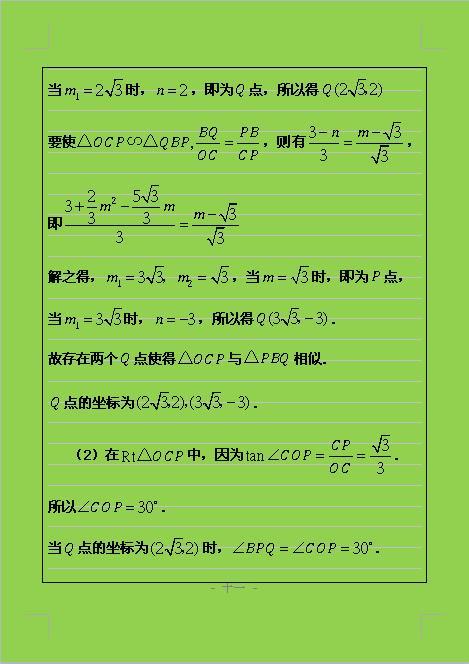 当 m₁=2√3 时，n=2，即为Q点，所以得 Q(2√3,2)
要使△OCP∽△QBP,BQ/OC=PB/CP，则有(3-n)/3=(m-√3)/√3，
即(3+2/3m²-5√3/3m)/3=(m-√3)/√3
解之得，m₁=3√3，m₂=√3，当m=√3时，即为P点，
当m₁=3√3时，n=-3，所以得Q(3√3,-3)．
故存在两个Q点使得△OCP与△PBQ相似．
Q点的坐标为(2√3,2),(3√3,-3)．
（2）在Rt△OCP中，因为tan∠COP=CP/OC=√3/3．
所以∠COP=30°．
当Q点的坐标为(2√3,2)时，∠BPQ=∠COP=30°．
- 十一 -